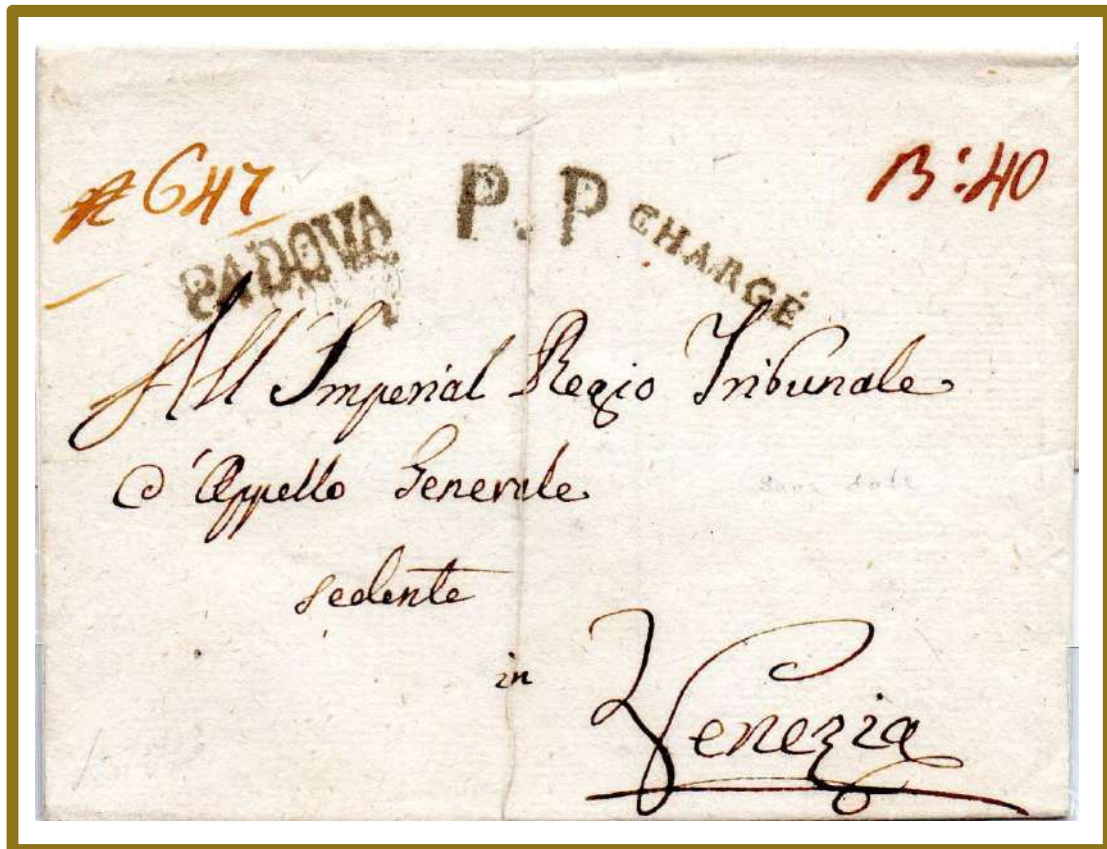 647
P. P
B:40
PADOVA
CHARGÉ
All' Imperial Regio Tribunale
d'Appello Generale
Sans date
sedente
in
Venezia